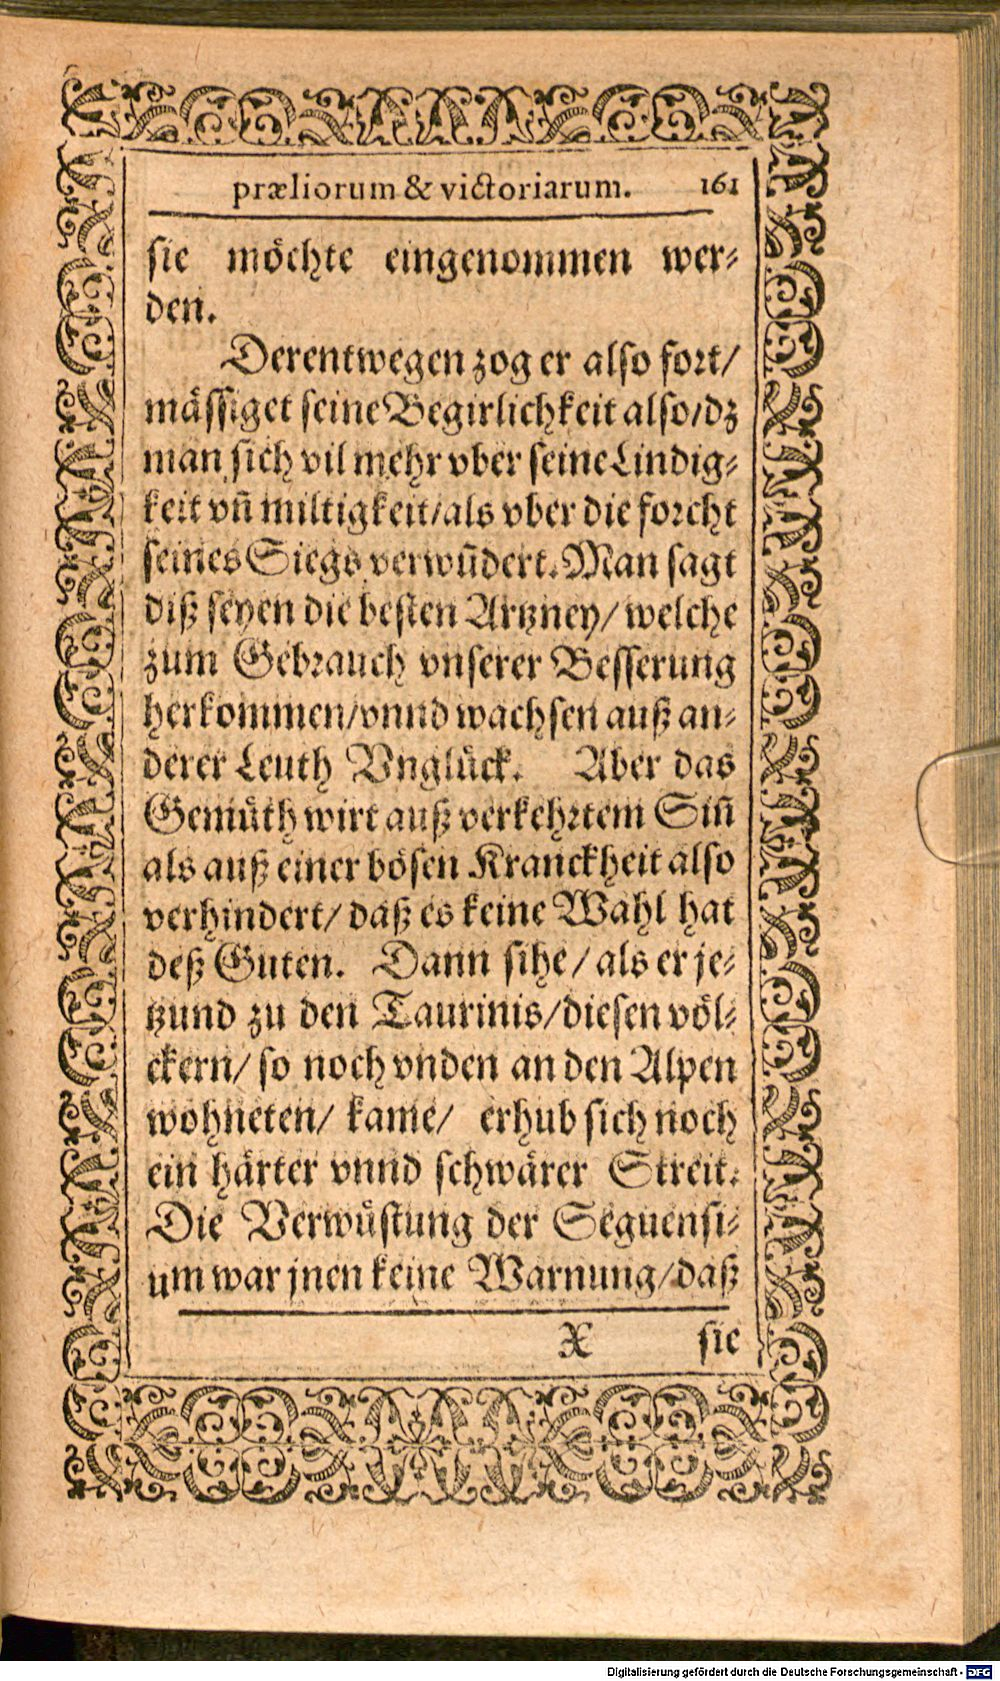 præliorum & victoriarum. 161
sie möchte eingenommen wer-
den.
Derentwegen zog er also fort/
mässiget seine Begirlichkeit also/dz
man sich vil mehr vber seine Lindig-
keit vñ miltigkeit/als vber die forcht
seines Siegs verwũdert. Man sagt
diß seyen die besten Artzney/ welche
zum Gebrauch vnserer Besserung
herkommen/vnnd wachsen auß an-
derer Leuth Vnglück. Aber das
Gemüth wirt auß verkehrtem Siñ
als auß einer bösen Kranckheit also
verhindert/ daß es keine Wahl hat
deß Guten. Dann sihe/ als er je-
tzund zu den Taurinis/diesen völ-
ckern/ so noch vnden an den Alpen
wohneten/ kame/ erhub sich noch
ein härter vnnd schwärer Streit.
Die Verwüstung der Seguensi-
um war jnen keine Warnung/daß
X sie
Digitalisierung gefördert durch die Deutsche Forschungsgemeinschaft - DFG